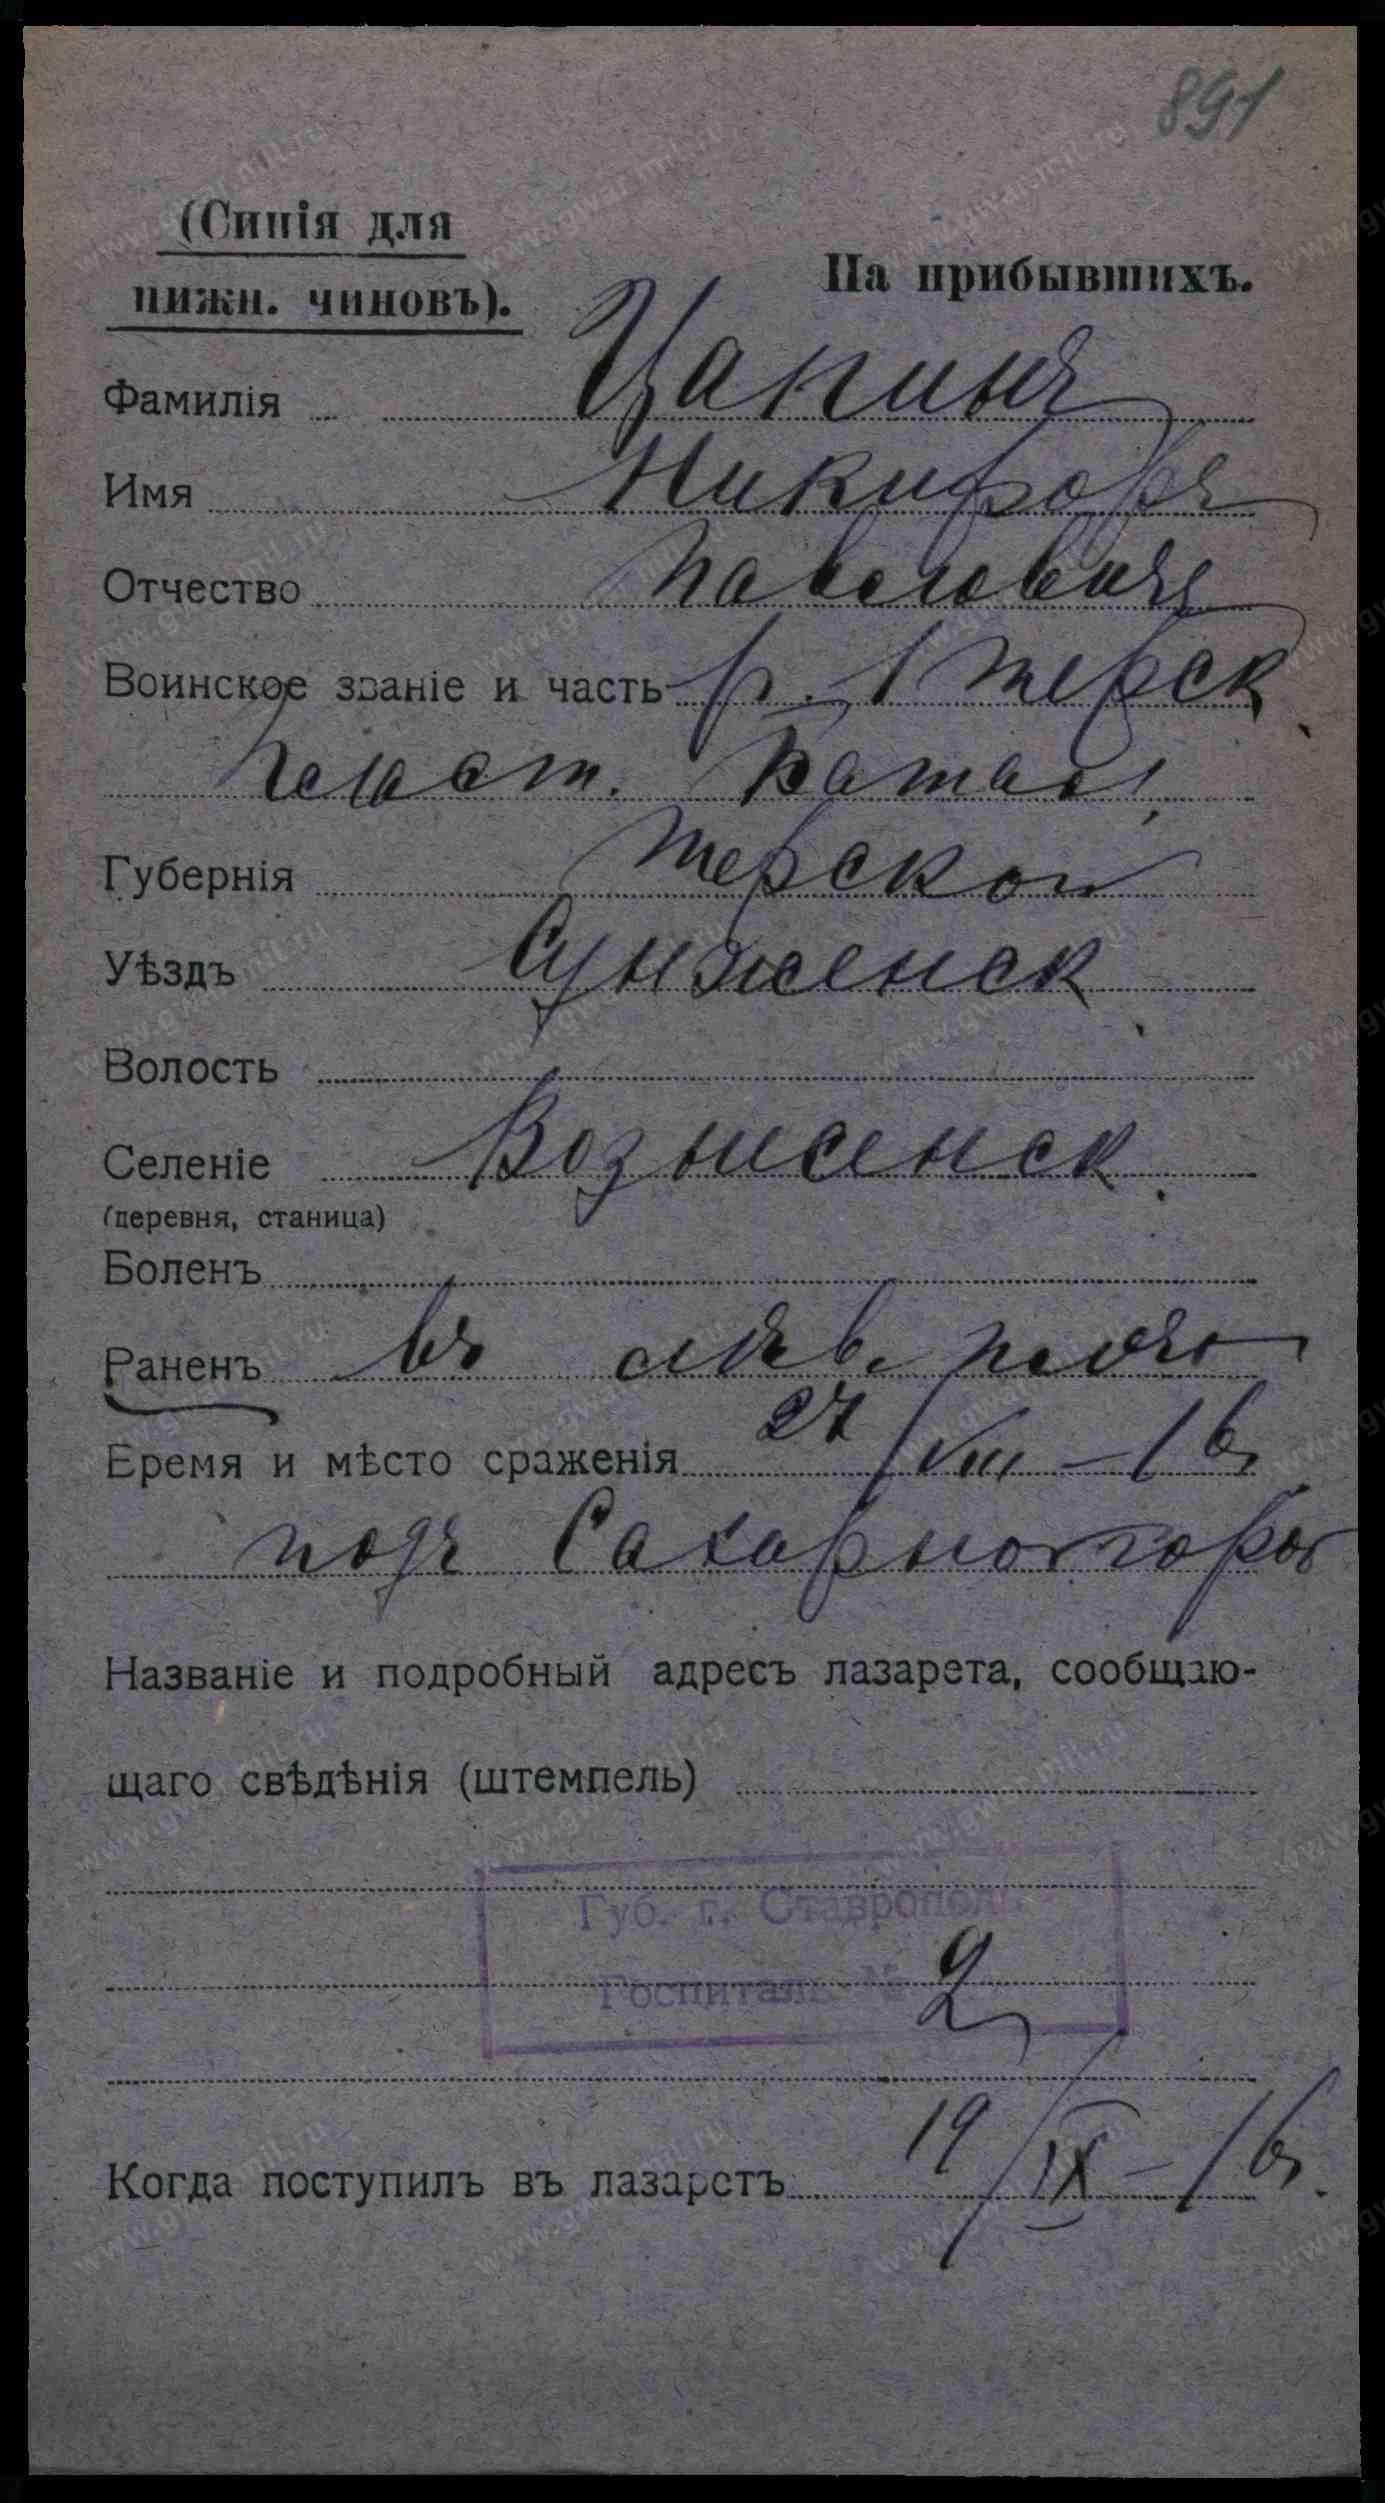 891
(Синія для
нижн. чиновъ).
На прибывшихъ.
Фамилія Цапинъ
Имя Никифоръ
Отчество Павловичъ
Воинское званіе и часть р. 1 Терск.
Пласт. Батал.
Губернія Терской
Уѣздъ Сунженск.
Волость
Селеніе Вознесенск.
(деревня, станица)
Боленъ
Раненъ въ лѣв. плечо
Время и мѣсто сраженія 27/VIII-16
подъ
Названіе и подробный адресъ лазарета, сообщаю-
щаго свѣдѣнія (штемпель)
Губ. г. Ставрополь
Госпиталь № 2
Когда поступилъ въ лазаретъ 19/IX-16.
www.gwar.mil.ru